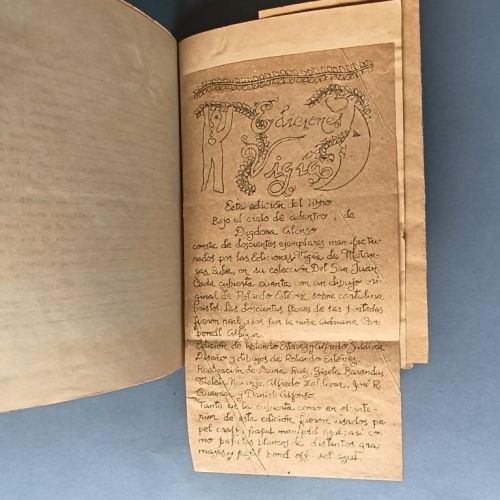 Ediciones
Vigía
Esta edición del libro
Bajo el cielo de adentro, de
Digdora Alonso
consta de doscientos ejemplares manufactu
rados por las Ediciones Vigía de Matan-
zas, Cuba, en su colección Del San Juan.
Cada cubierta cuenta con un dibujo ori
ginal de Rolando Estévez sobre cartulina
bristol. Las doscientas flores de las portadas
fueron por la niña Adriana
Edición de Rolando Estévez y Alfredo Zaldívar
Diseño y dibujos de Rolando Estévez.
Realización de Ruiz, Gisela Baranda,
Naranjo, Alfredo Zaldívar, José R.
y Daniel Alfonso.
Tanto en la cubierta como en el inte-
rior de esta edición fueron usados pa
pel craft, papel manifold azul; así co
mo papeles blancos de distintos gra
majes y papel bond off-set azul.